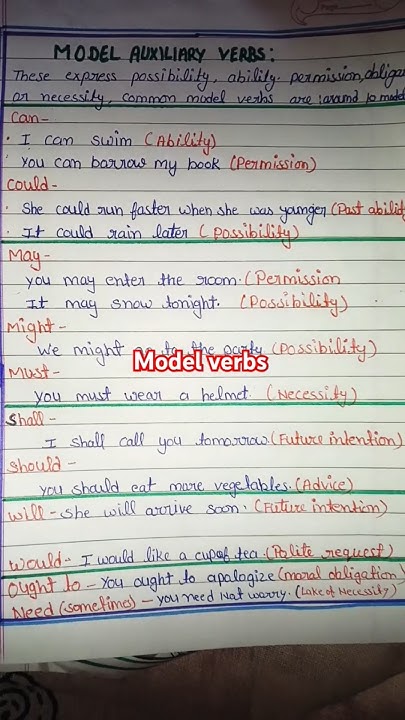 MODEL AUXILIARY VERBS:
These express possibility, ability, permission, obliga
or necessity, common model verbs are :around 10 modal
Can-
· I can swim (Ability)
You can barrow my book (Permission)
Could-
· She could run faster when she was younger (Past abilit
· It could rain later (Possibility)
May-
you may enter the room. (Permission
It may snow tonight. (Possibility)
Might-
We might go to the party (Possibility)
Model verbs
Must-
You must wear a helmet. (Necessity)
Shall-
I shall call you tomorrow. (Future intention)
Should-
you should eat more vegetables. (Advice)
Will - She will arrive soon. (Future intention)
Would- I would like a cup of tea. (Polite request)
Ought to - You ought to apologize (moral obligation)
Need (sometimes) - you need Not worry. (Lake of Necessity)